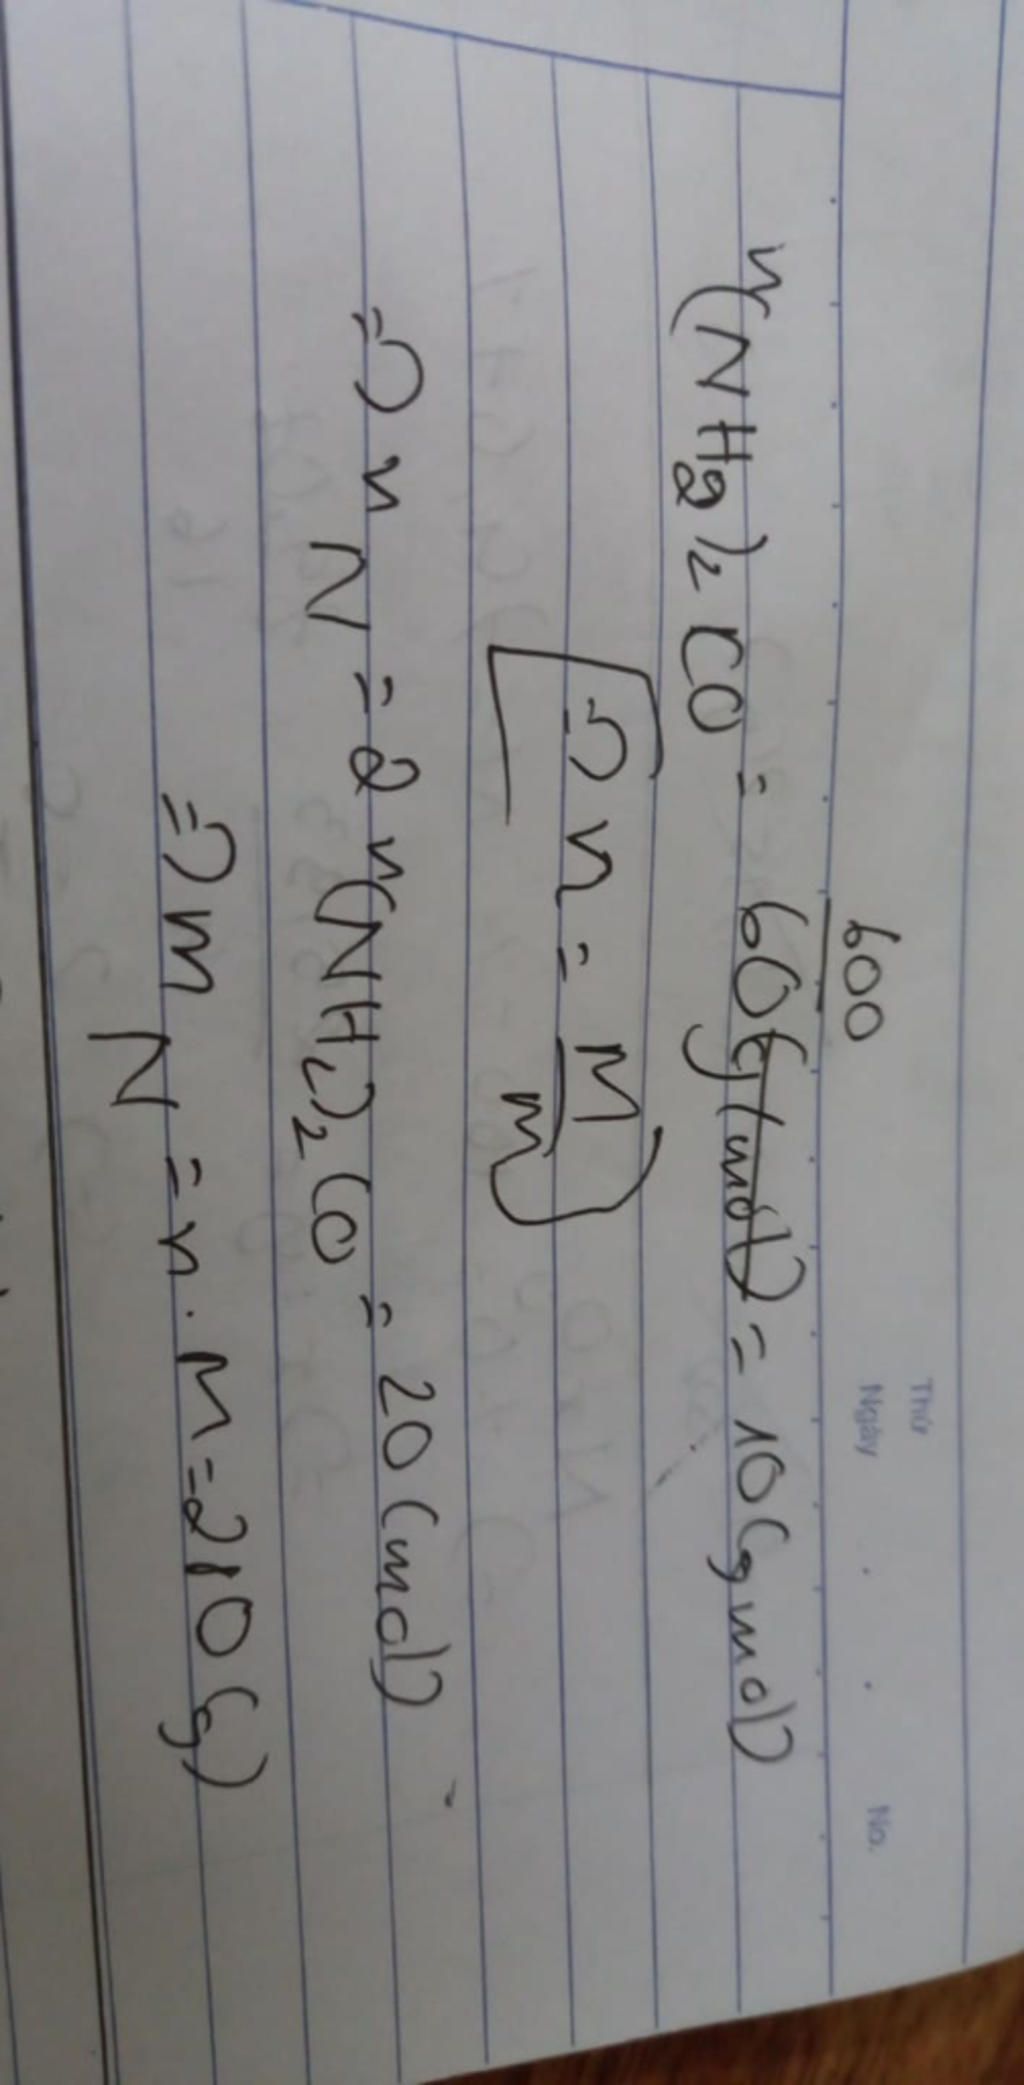 Thứ
Ngày . . No.
n(NH2)2CO = 600/60(g/mol) = 10(gmol)
[=> n = M/m]
=> n N = 2 n(NH2)2CO = 20 (mol)
=> m N = n . M = 280 (g)